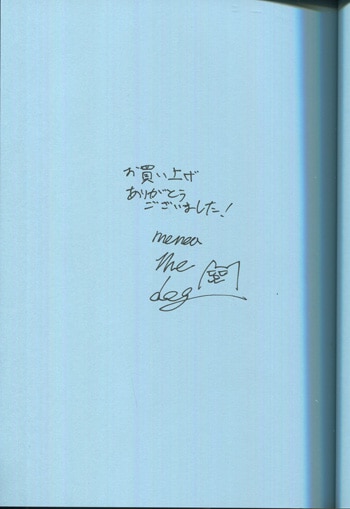 お買い上げ
ありがとう
ございました!
menea
the
dog